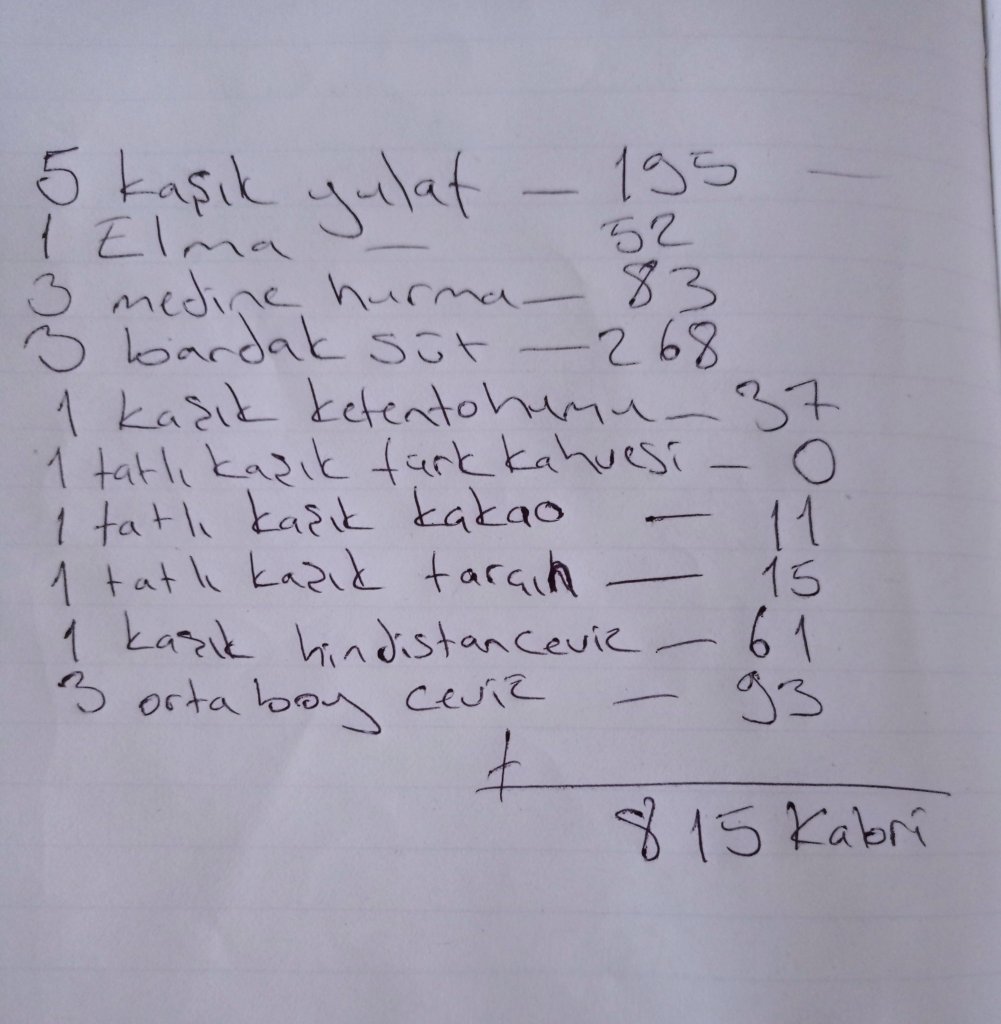 5 kaşık yulaf — 195 —
1 Elma — 52
3 medine hurma — 83
3 bardak süt — 268
1 kaşık ketentohumu — 37
1 tatlı kaşık türk kahvesi — 0
1 tatlı kaşık kakao — 11
1 tatlı kaşık tarçın — 15
1 kaşık hindistanceviz — 61
3 orta boy ceviz — 93
+
815 Kalori